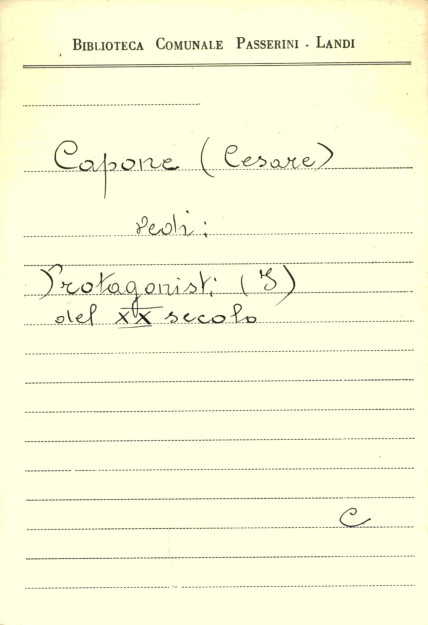 BIBLIOTECA COMUNALE PASSERINI - LANDI
Capone (Cesare)
vedi:
Protagonisti (I)
del XX secolo
C